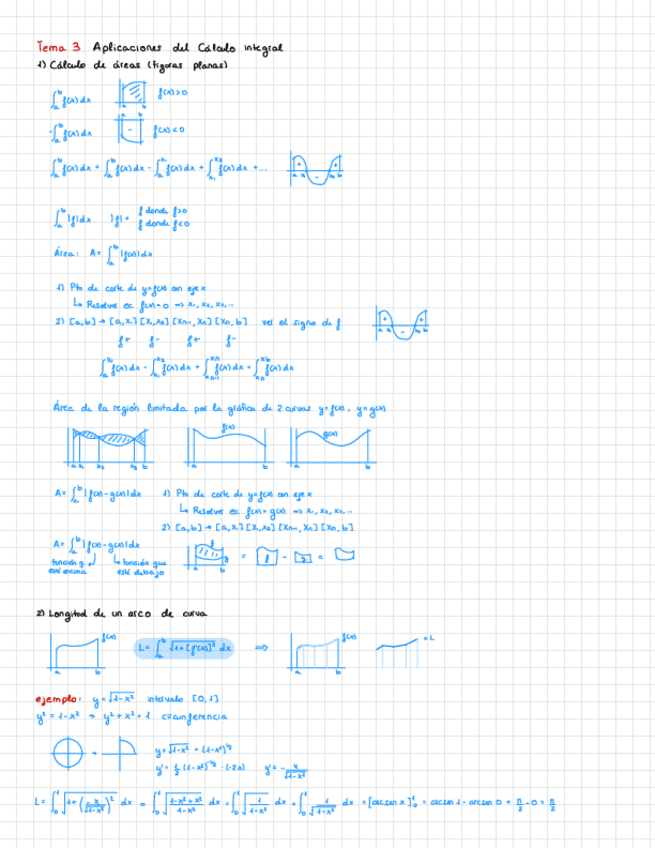 Tema 3 Aplicaciones del Cálculo integral
1) Cálculo de áreas (figuras planas)
∫ₐᵇ f(x)dx f(x)>0
a b
-∫ₐᵇ f(x)dx f(x)<0
a b
∫ₐᵇ f(x)dx = ∫ₐᵇ f(x)dx - ∫ f(x)dx + ∫ f(x)dx + ...
∫ₐᵇ |f|dx |f| = f donde f>0
f donde f<0
Área: A= ∫ₐᵇ |f(x)|dx
1) Pto de corte de y=f(x) con eje x
↳ Resolver ec f(x)=0 ⇒ x₁, x₂, x₃...
2) [a,b] → [a,x₁] [x₁,x₂] [xn-1, xn] [xn, b] ver el signo de f
f+ f- f+ f-
Área de la región limitada por la gráfica de 2 curvas y=f(x), y=g(x)
f(x) g(x)
a x₁ x₂ x₃ b a b a b
A= ∫ₐᵇ |f(x)-g(x)|dx 1) Pto de corte de y=f(x) con eje x
↳ Resolver ec f(x)=g(x) ⇒ x₁, x₂, x₃...
2) [a,b] → [a,x₁] [x₁,x₂] [xn-1, xn] [xn, b]
A= ∫ₐᵇ |f(x)-g(x)|dx
función q está encima ↳ función que está debajo
a b
2) Longitud de un arco de curva
f(x) L= ∫ₐᵇ √(1+[f'(x)]²) dx ⇒ f(x) = L
a b a b
ejemplo: y=√(1-x²) intervalo [0,1]
y² = 1-x² → y²+x² = 1 circunferencia
y=√(1-x²) = (1-x²)^(1/2)
y'= 1/2 (1-x²)^(-1/2) · (-2x) y'= -x/√(1-x²)
L= ∫₀¹ √(1+(-x/√(1-x²))²) dx = ∫₀¹ √((1-x²+x²)/(1-x²)) dx = ∫₀¹ √(1/(1-x²)) dx = ∫₀¹ 1/√(1-x²) dx = [arcsen x]₀¹ = arcsen 1 - arcsen 0 = π/2 - 0 = π/2